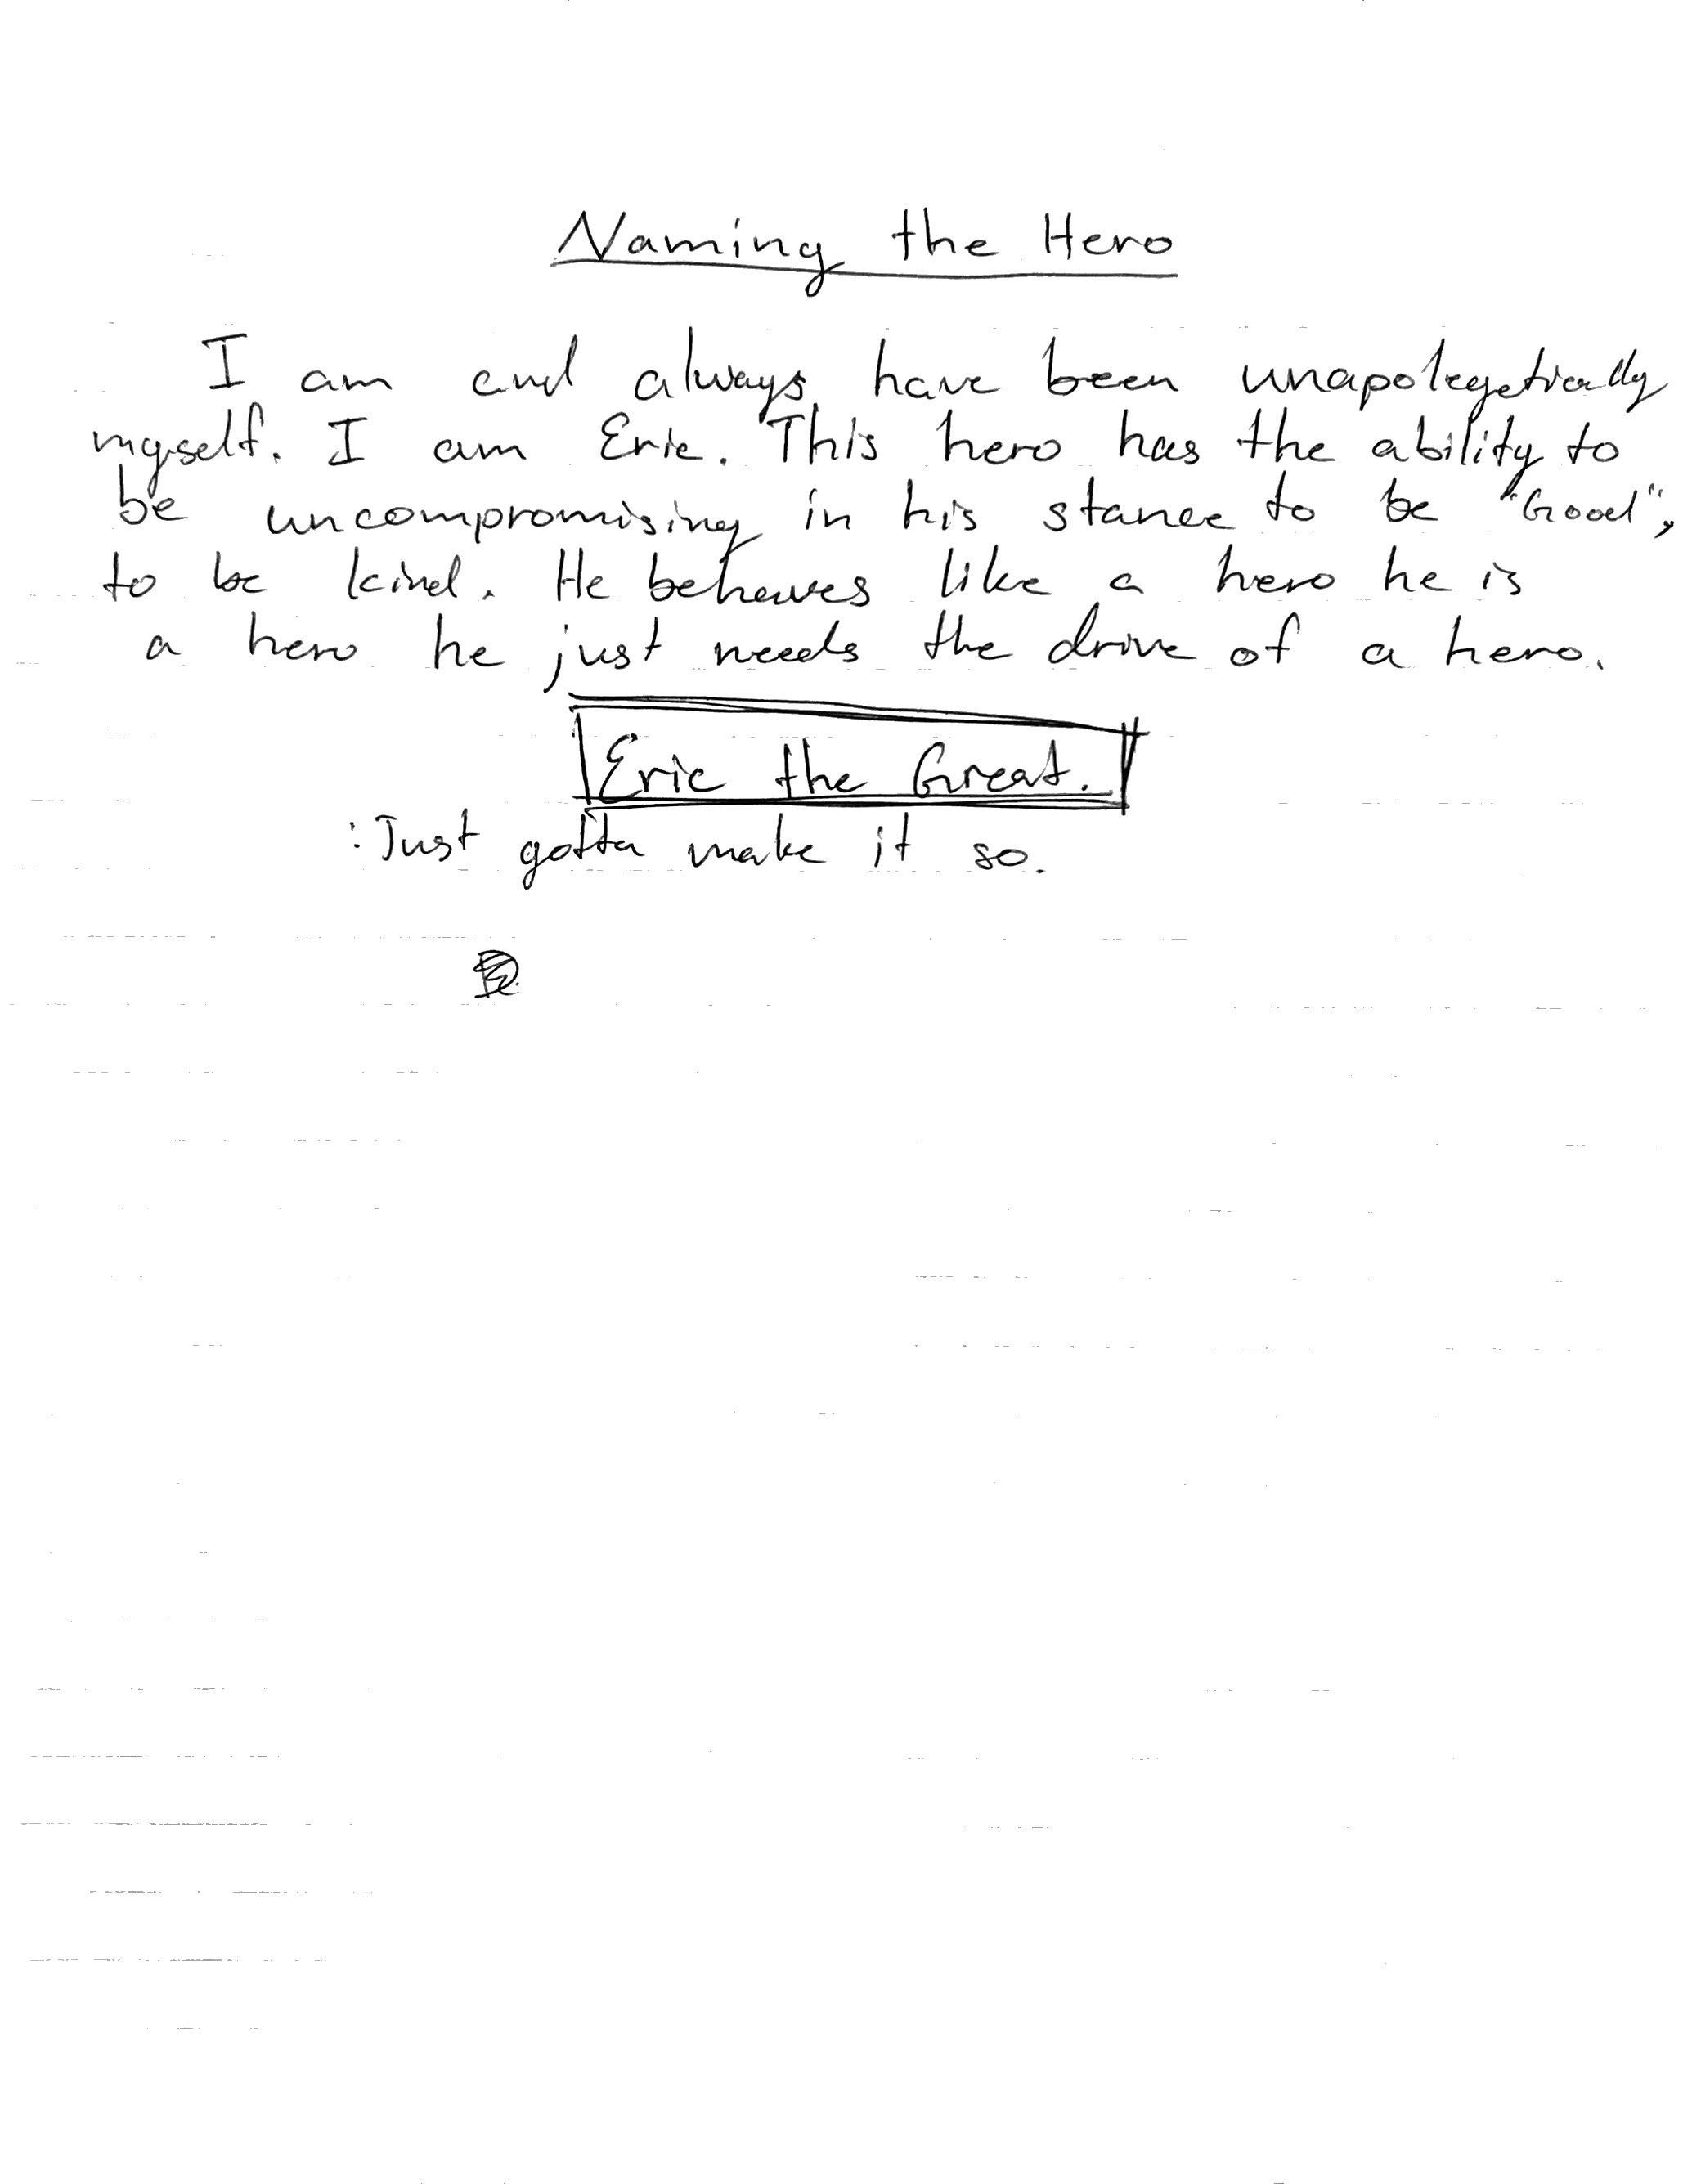 Naming the Hero
I am and always have been unapologetically
myself. I am Eric. This hero has the ability to
be uncompromising in his stance to be "Good",
to be kind. He behaves like a hero he is
a hero he just needs the drive of a hero.
Eric the Great.
:Just gotta make it so.